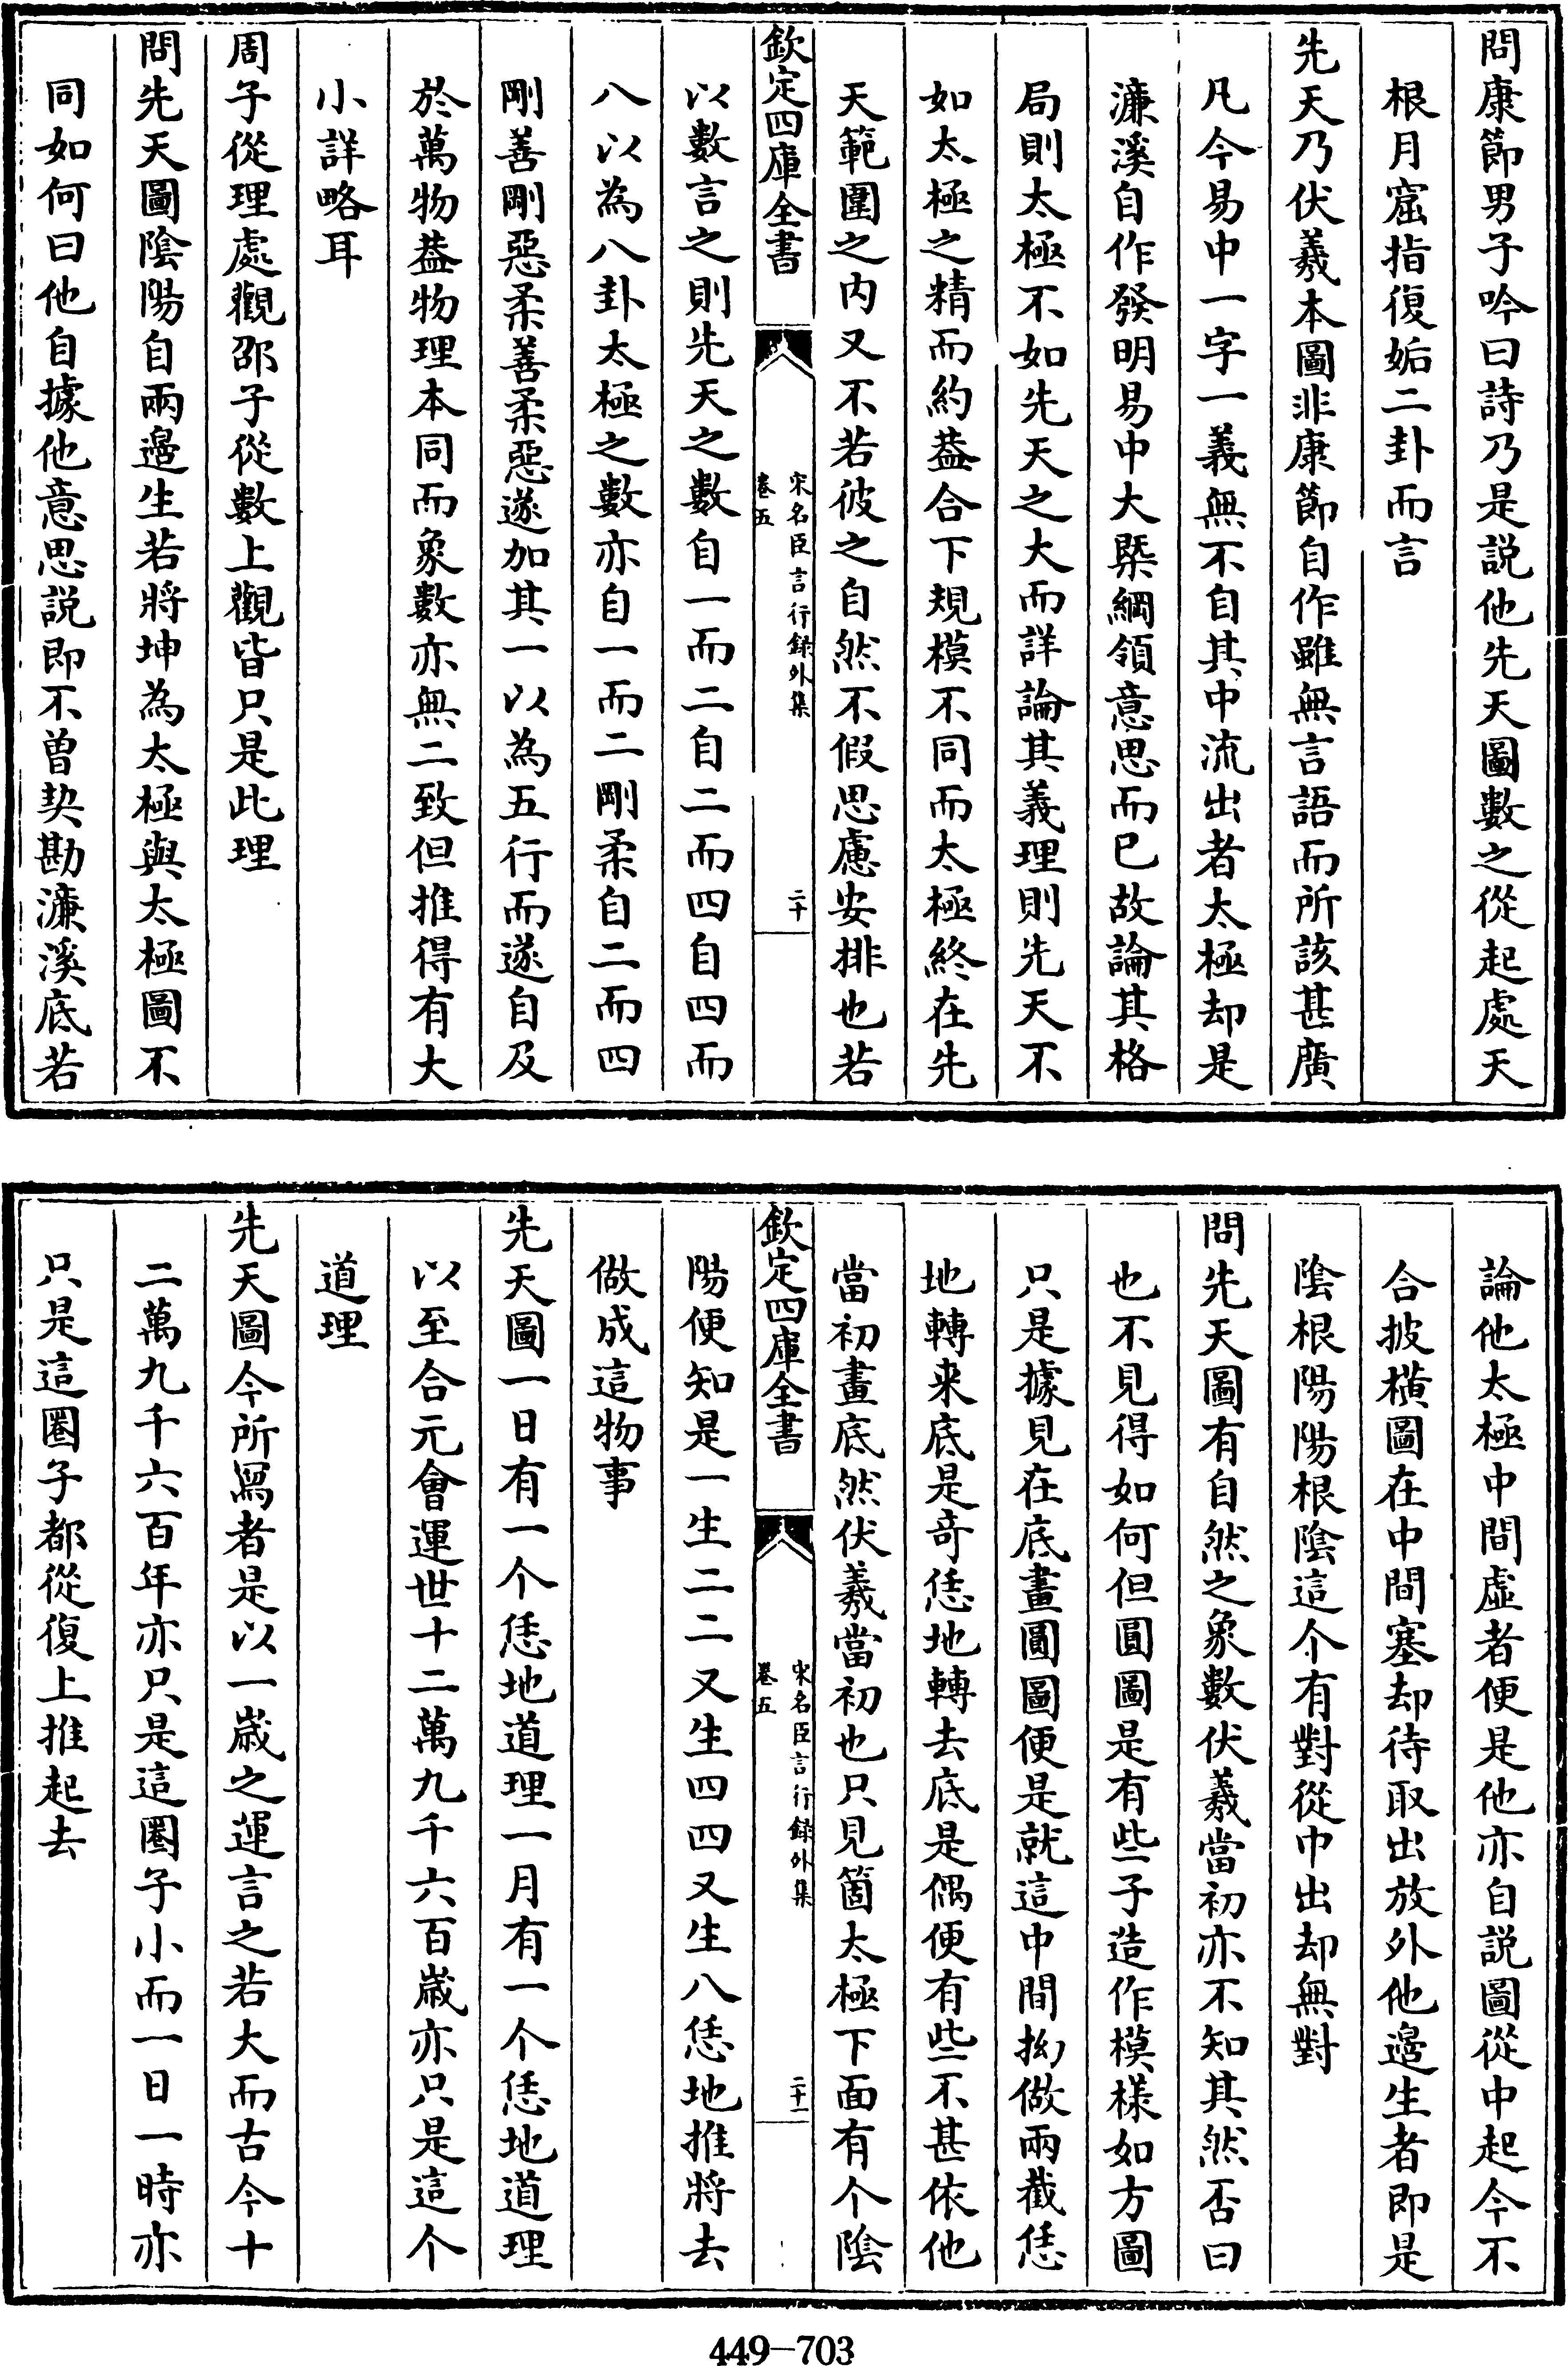 問康節男子吟曰詩乃是説他先天圖數之從起處天
根月窟指復姤二卦而言
先天乃伏羲本圖非康節自作雖無言語而所該甚廣
凡今易中一字一義無不自其中流出者太極却是
濂溪自作發明易中大槩綱領意思而已故論其格
局則太極不如先天之大而詳論其義理則先天不
如太極之精而約葢合下規模不同而太極終在先
天範圍之内又不若彼之自然不假思慮安排也若
欽定四庫全書
宋名臣言行録外集
卷五
二十
以數言之則先天之數自一而二自二而四自四而
八以為八卦太極之數亦自一而二剛柔自二而四
剛善剛惡柔善柔惡遂加其一以為五行而遂自及
於萬物葢物理本同而象數亦無二致但推得有大
小詳略耳
周子從理處觀邵子從數上觀皆只是此理
問先天圖陰陽自兩邉生若將坤為太極與太極圖不
同如何曰他自據他意思説即不曾契勘濂溪底若
論他太極中間虚者便是他亦自説圖從中起今不
合披橫圖在中間塞却待取出放外他邉生者即是
陰根陽陽根陰這个有對從中出却無對
問先天圖有自然之象數伏羲當初亦不知其然否曰
也不見得如何但圓圖是有些子造作模樣如方圖
只是據見在底畫圓圖便是就這中間拗做兩截恁
地轉来底是奇恁地轉去底是偶便有些不甚依他
當初畫底然伏羲當初也只見箇太極下面有个陰
欽定四庫全書
宋名臣言行録外集
卷五
二十一
陽便知是一生二二又生四四又生八恁地推將去
做成這物事
先天圖一日有一个恁地道理一月有一个恁地道理
以至合元會運世十二萬九千六百歲亦只是這个
道理
先天圖今所寫者是以一歲之運言之若大而古今十
二萬九千六百年亦只是這圈子小而一日一時亦
只是這圈子都從復上推起去
449-703